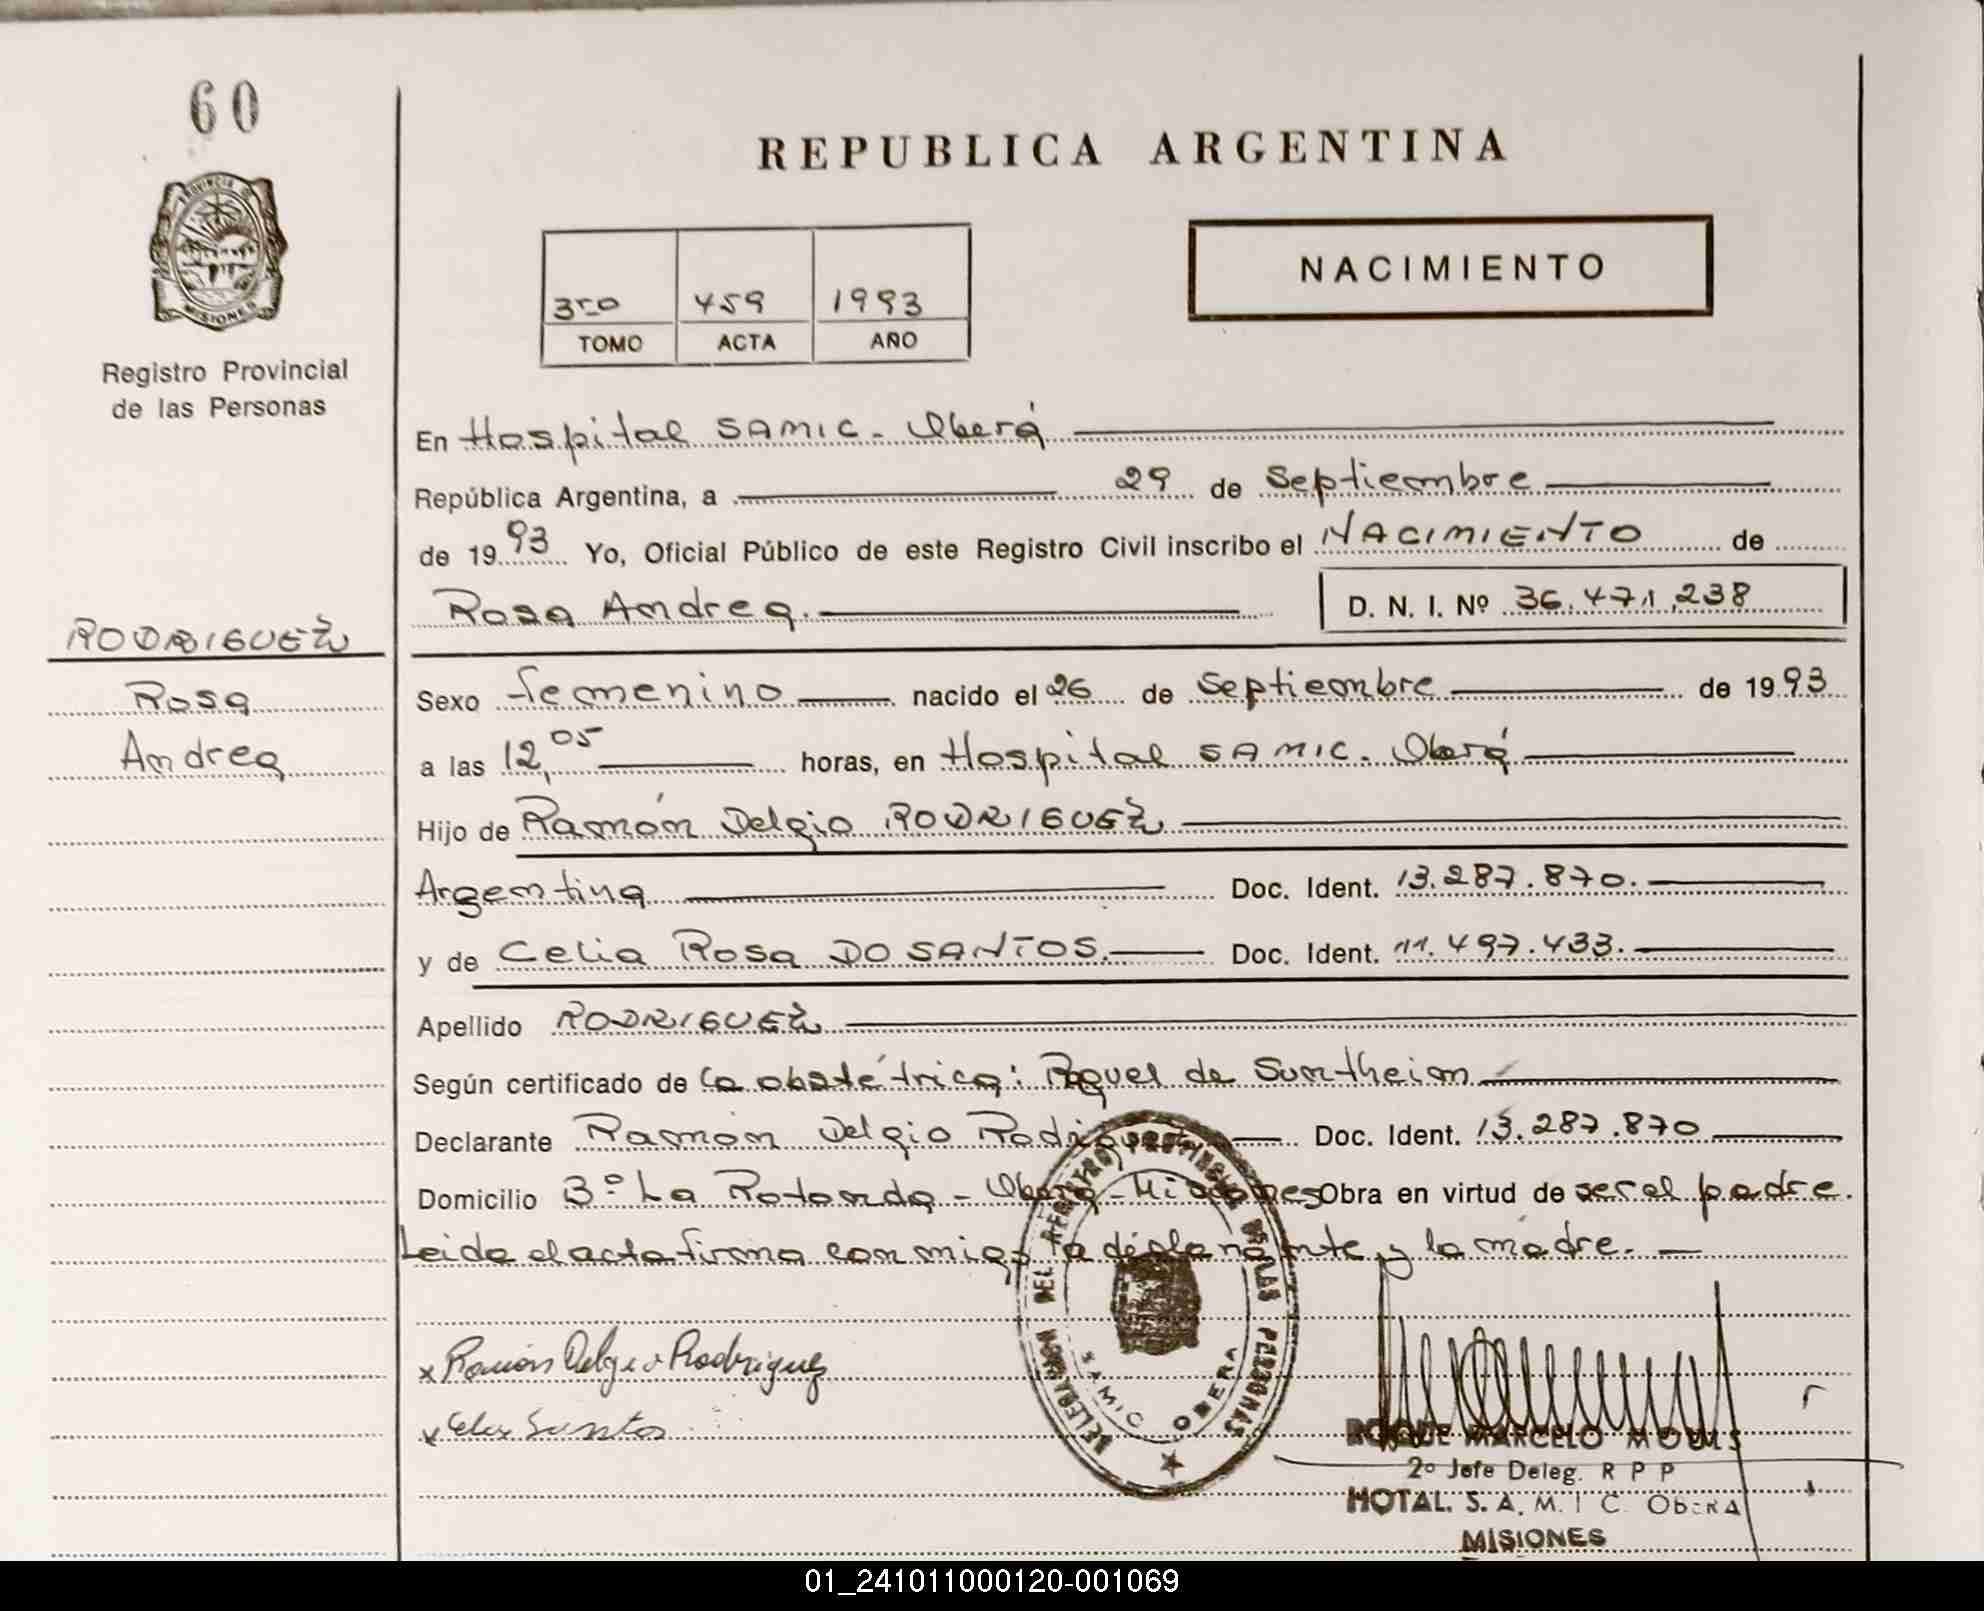 60
REPUBLICA ARGENTINA
PROVINCIA DE
MISIONES
NACIMIENTO
3ro 459 1993
TOMO ACTA AÑO
Registro Provincial
de las Personas
En Hospital SAMIC - Oberá
República Argentina, a 29 de Septiembre
de 1993 Yo, Oficial Público de este Registro Civil inscribo el NACIMIENTO de
Rosa Andrea. D. N. I. Nº 36.471.238
RODRIGUEZ
Rosa
Andrea
Sexo femenino nacido el 26 de Septiembre de 1993
a las 12,05 horas, en Hospital SAMIC. Oberá
Hijo de Ramón Delgio RODRIGUEZ
Argentina Doc. Ident. 13.287.870.
y de Celia Rosa DO SANTOS. Doc. Ident. 11.497.433.
Apellido RODRIGUEZ
Según certificado de la obstétrica: Raquel de Suntheim
Declarante Ramón Delgio Rodriguez Doc. Ident. 13.287.870
Domicilio 3º La Rotonda - Oberá - Misiones Obra en virtud de ser el padre.
Leida el acta firma con migo la declarante y la madre.
x Ramón Delgio Rodriguez
x Santos
DELEGACION DEL REGISTRO PROVINCIAL DE LAS PERSONAS
SAMIC OBERA
ROQUE MARCELO
2º Jefe Deleg. R P P
HOTAL. S. A. M. I C. OBERA
MISIONES
01_241011000120-001069